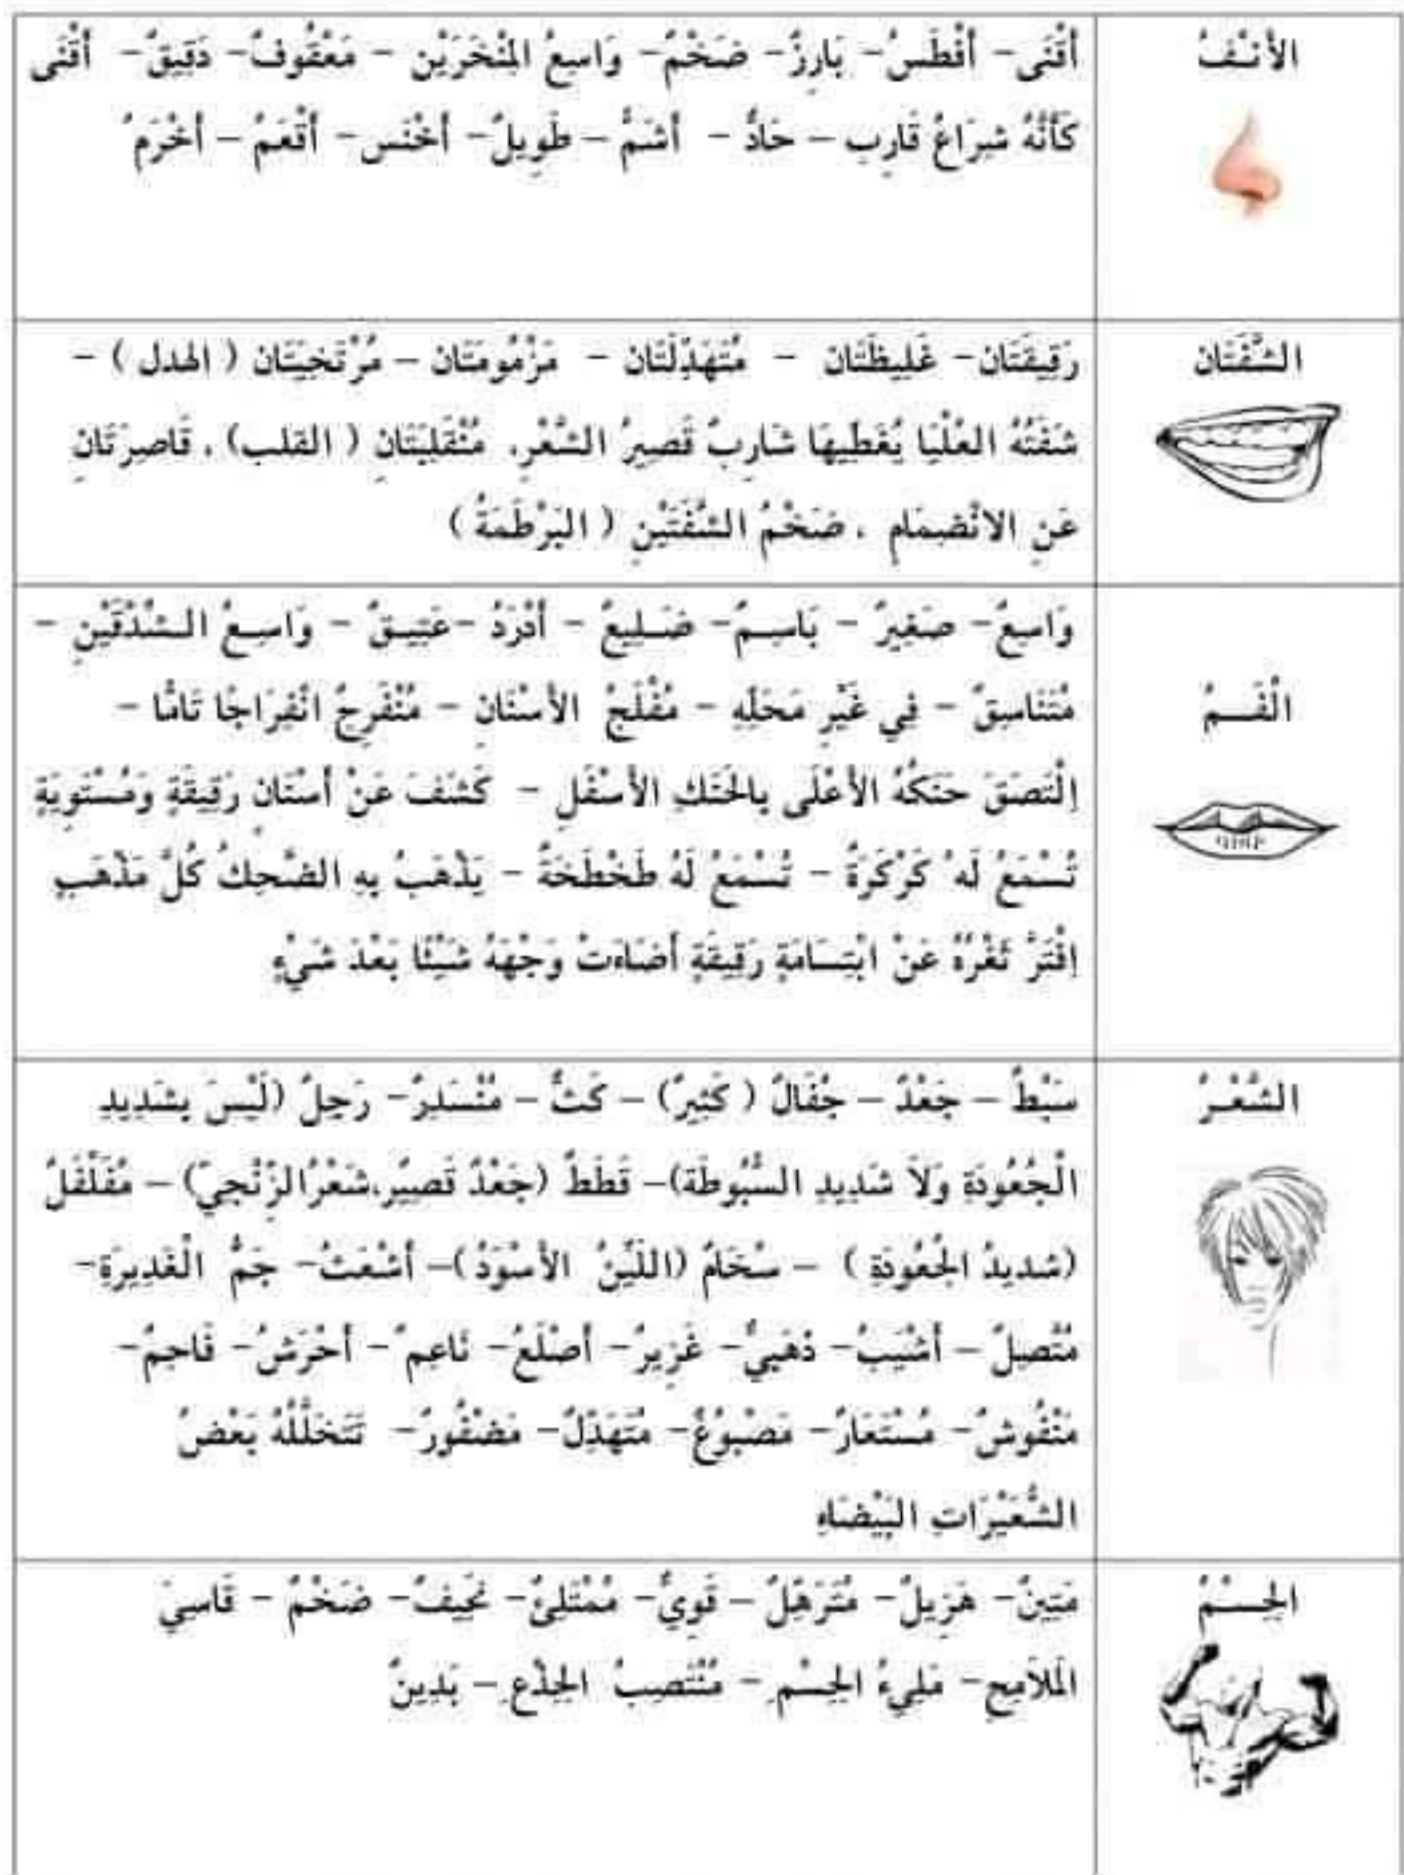 الأَنْفُ
أَقْنَى- أَفْطَسُ- بَارِزٌ- ضَخْمٌ- وَاسِعُ المِنْخَرَيْنِ - مَعْقُوفٌ- دَقِيقٌ- أَقْنَى
كَأَنَّهُ شِرَاعُ قَارِبٍ – حَادٌّ - أَشَمُّ – طَوِيلٌ- أَخْنَس- أَقْعَمُ – أَخْرَمُ
الشَّفَتَان
رَقِيقَتَان- غَلِيظَتَان - مُتَهَدِّلَتَان - مَزْمُومَتَان – مُرْتَخِيَتَان ( الهدل ) -
شَفَتُهُ العُلْيَا يُغَطِّيهَا شَارِبٌ قَصِيرُ الشَّعْرِ. مُنْقَلِبَتَانِ ( القلب) . قَاصِرَتَانِ
عَنِ الانْضِمَامِ . ضَخْمُ الشَّفَتَيْنِ ( البَرْطَمَةُ )
الْفَـــمُ
وَاسِعٌ- صَغِيرٌ - بَاسِـمٌ- ضَـلِيعٌ - أَدْرَدُ -عَتِيـقٌ - وَاسِـعُ الـشِّدْقَيْنِ -
مُتَنَاسِقٌ - فِي غَيْرِ مَحَلِّهِ - مُفْلَجُ الأَسْنَانِ - مُنْفَرِجٌ انْفِرَاجًا تَامًّا -
اِلْتَصَقَ حَنَكُهُ الأَعْلَى بِالحَنَكِ الأَسْفَلِ - كَشَفَ عَنْ أَسْنَانٍ رَقِيقَةٍ وَمُسْتَوِيَةٍ
تُسْمَعُ لَهُ كَرْكَرَةٌ - تُسْمَعُ لَهُ طَخْطَخَةٌ - يَذْهَبُ بِهِ الضَّحِكُ كُلَّ مَذْهَبٍ
اِفْتَرَّ ثَغْرُهُ عَنْ ابْتِسَامَةٍ رَقِيقَةٍ أَضَاءَتْ وَجْهَهُ شَيْئًا بَعْدَ شَيْءٍ
الشَّعْـرُ
سَبْطٌ – جَعْدٌ – جُفَالٌ ( كَثِيرٌ) – كَثٌّ – مُنْسَدِرٌ- رَجِلٌ (لَيْسَ بِشَدِيدِ
الْجُعُودَةِ وَلاَ شَدِيدِ السُّبُوطَة)– قَطَطٌ (جَعْدٌ قَصِيرٌ،شَعْرُ الزِّنْجِيّ) – مُفَلْفَلٌ
(شديدُ الجُعُودَةِ ) – سُخَامٌ (اللَّيِّنُ الأَسْوَدُ )– أَشْعَثُ- جَمُّ الْغَدِيرَةِ-
مُتَّصِلٌ – أَشْيَبُ- ذَهَبِيٌّ- غَزِيرٌ- أَصْلَعُ- نَاعِمٌ - أَحْرَشُ- فَاحِمٌ-
مَنْفُوشٌ- مُسْتَعَارٌ- مَصْبُوغٌ- مُتَهَدِّلٌ- مَضْفُورٌ- تَتَخَلَّلُهُ بَعْضُ
الشُّعَيْرَاتِ البَيْضَاءِ
الجِسْـمُ
مَتِينٌ- هَزِيلٌ- مُتَرَهِّلٌ – قَوِيٌّ- مُمْتَلِئٌ- نَحِيفٌ- ضَخْمٌ - قَاسِيَ
المَلاَمِحِ- مَلِيءُ الجِسْمِ- مُنْتَصِبُ الجِذْعِ – بَدِينٌ